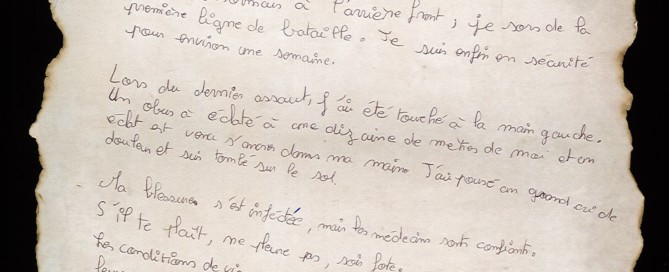 à l'arrière front, je sors de la
première ligne de bataille. Je suis enfin en sécurité
pour environ une semaine.
Lors du dernier assaut, j'ai été touché à la main gauche.
Un obus à éclaté à une dizaine de mètres de moi et un
éclat est venu s'ancrer dans ma main. J'ai poussé un grand cri de
douleur et suis tombé sur le sol.
Ma blessure s'est infectée, mais les médecins sont confiants.
S'il te plaît, ne pleure pas, sois forte.
Les conditions de vie